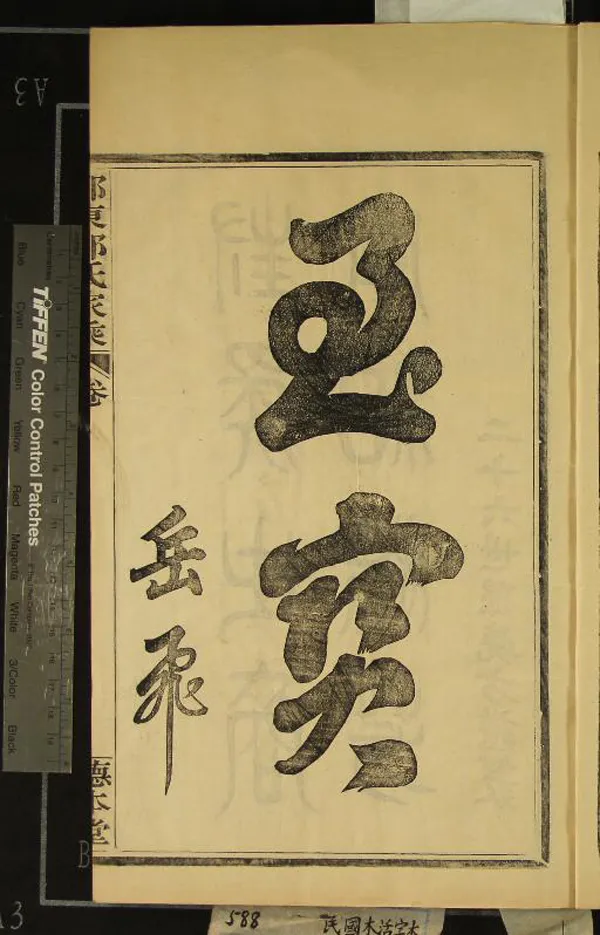 至寶
岳飛
TIFFEN Color Control Patches
Blue Cyan Green Yellow Red Magenta White 3/Color Black
A3
B
A3
588
民國木活字本